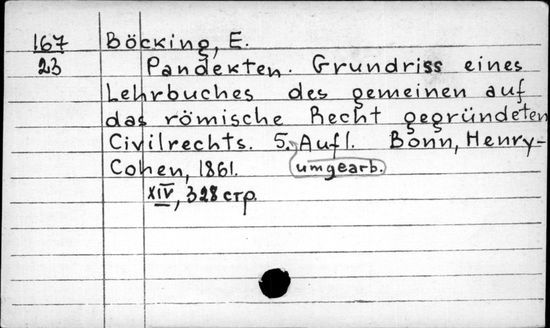 167
23
Böcking, E.
Pandekten. Grundriss eines
Lehrbuches des gemeinen auf
das römische Recht gegründeten
Civilrechts. 5. Aufl. Bonn, Henry-
umgearb.
Cohen, 1861.
XIV, 328 стр.